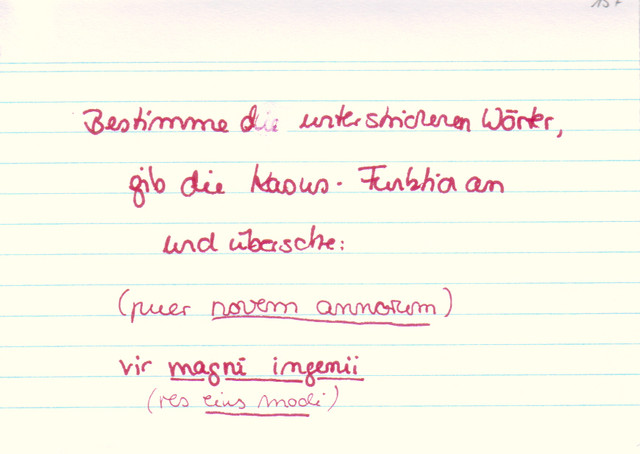 Bestimme die unterstrichenen Wörter,
gib die Kasus-Funktion an
und übersetze:
(puer novem annorum)
vir magni ingenii
(res eius modi)